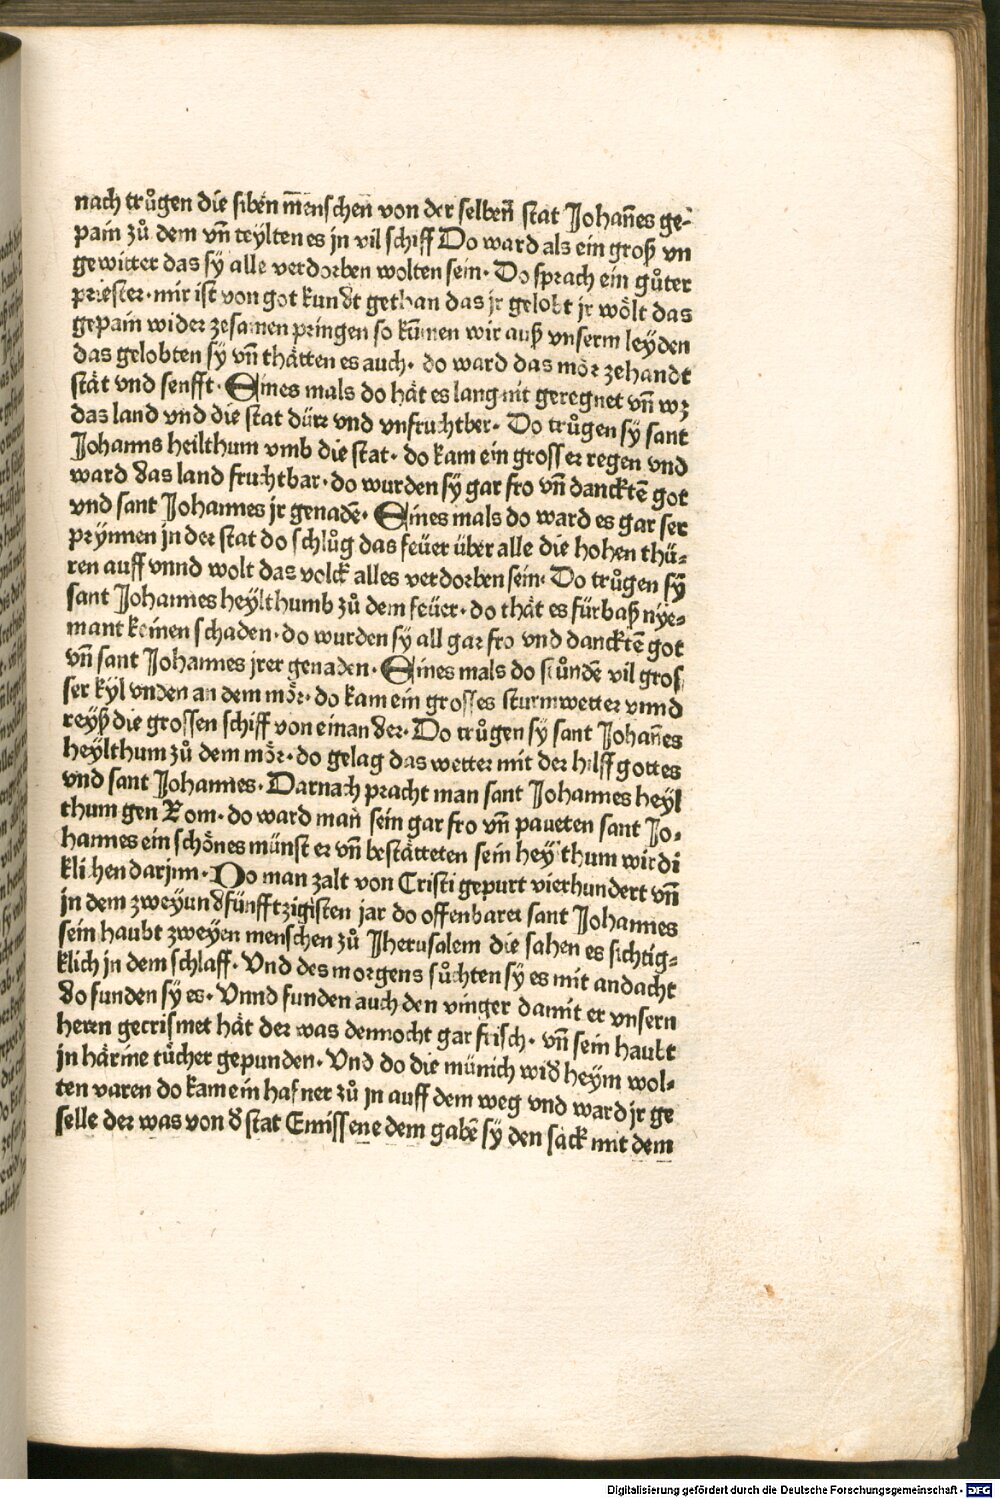 nach trůgen die siben menschen von der selbeñ stat Johañes ge⸗
pain zů dem vñ teylten es jn vil schiff Do ward als ein groß vn
gewitter das sÿ alle verdorben wolten sein· Do sprach ein gůter
priester· mir ist von got kundt gethan das jr gelobt jr wölt das
gepain wider zesamen pringen so kūmen wir auß vnserm leyden
das gelobten sÿ vñ thätten es auch· do ward das mör zehandt
stät vnd senfft· Eines mals do hät es lang nit geregnet vñ wz
das land vnd die stat dürr vnd vnfruchtber· Do trůgen sÿ sant
Johanns heilthum vmb die stat· do kam ein grosser regen vnd
ward das land fruchtbar· do wurden sÿ gar fro vñ dancktē got
vnd sant Johannes jr genadē· Eines mals do ward es gar ser
prÿnnen jn der stat do schlůg das feüer über alle die hohen thü⸗
ren auff vnnd wolt das volck alles verdorben sein· Do trůgen sÿ
sant Johannes heÿlthumb zů dem feüer· do thät es fürbaß nÿe⸗
mant keinen schaden· do wurden sÿ all gar fro vnd dancktē got
vñ sant Johannes jrer genaden· Eines mals do stůndē vil gros
ser kÿl vnden an dem mör· do kam ein grosses sturmwetter vnnd
reÿß die grossen schiff von einander· Do trůgen sÿ sant Johañes
heÿlthum zů dem mör· do gelag das wetter mit der hilff gottes
vnd sant Johannes· Darnach pracht man sant Johannes heÿl
thum gen Rom· do ward man sein gar fro vñ paueten sant Jo⸗
hannes ein schönes münster vñ bestätteten sein heÿlthum wirdi
klichen darjnn· Do man zalt von Cristi gepurt vierhundert vñ
jn dem zweyundfünfftzigisten jar do offenbaret sant Johannes
sein haubt zweyen menschen zů Jherusalem die sahen es sichtig⸗
klich jn dem schlaff· Vnd des morgens sůchten sÿ es mit andacht
do funden sÿ es· Vnnd funden auch den vinger damit er vnsern
herrn gecrismet hät der was dennocht gar frisch· vñ sein haubt
jn härine tücher gepunden· Vnd do die münich wid heÿm wol⸗
ten varen do kam ein hafner zů jn auff dem weg vnd ward jr ge
selle der was von d stat Emissene dem gabē sÿ den sack mit dem
Digitalisierung gefördert durch die Deutsche Forschungsgemeinschaft - DFG